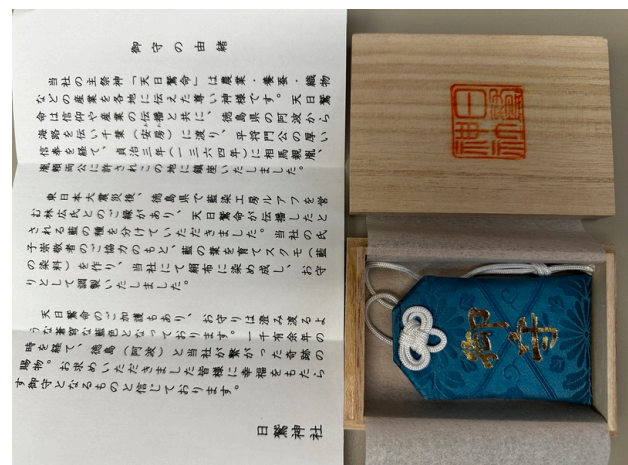 御守の由緒
当社の主祭神「天日鷲命」は農業・養蚕・織物
などの産業を各地に伝えた尊い神様です。天日鷲
命は信仰や産業の伝播と共に、徳島県の阿波から
海路を伝い千葉(安房)に渡り、平将門公の厚い
信奉を経て、貞治三年(一三六四年)に相馬親胤、
胤頼両公に許されこの地に鎮座いたしました。
東日本大震災後、徳島県で藍染工房ルアフを営
む林広氏とのご縁があり、天日鷲命が伝播したと
される藍の種を分けていただきました。当社の氏
子崇敬者のご協力のもと、藍の葉を育てスクモ(藍
の染料)を作り、当社にて絹布に染め成し、お守
りとして調製いたしました。
天日鷲命のご加護もあり、お守りは澄み渡るよ
うな蒼穹な藍色となっております。一千有余年の
時を経て、徳島(阿波)と当社が繋がった奇跡の
賜物。お求めいただきました皆様に幸福をもたら
す御守となるものと信じております。
日鷲神社
御守